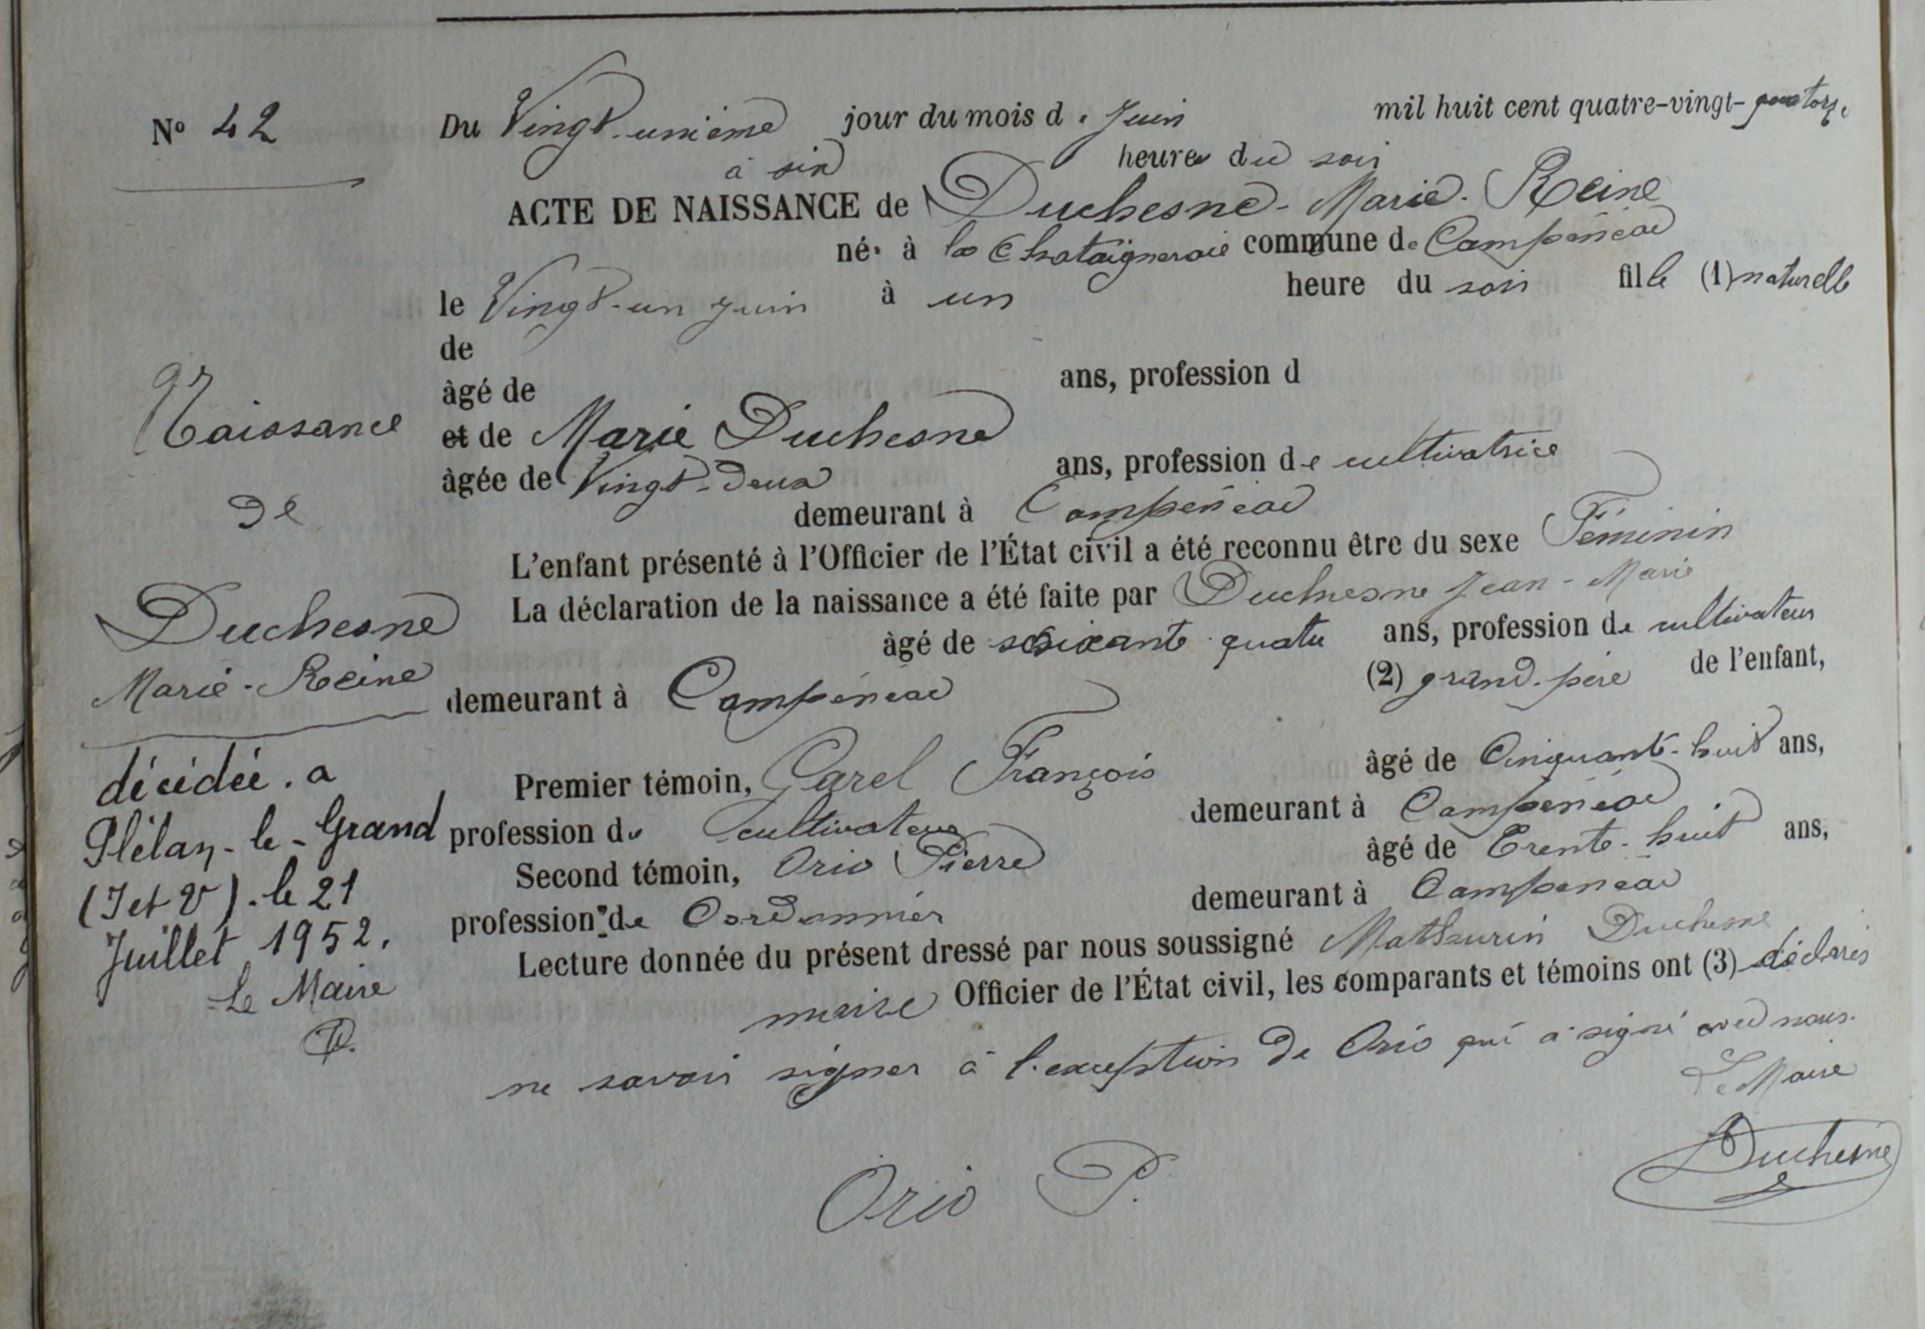 N° 42
Du Vingt-unième jour du mois de Juin mil huit cent quatre-vingt-quatorze
à six heures du soir
ACTE DE NAISSANCE de Duchesne Marie Reine
née à la Chataigneraie commune de Campénéac
le Vingt-un juin à un heure du soir fille (1) naturelle
de
âgé de ans, profession d
et de Marie Duchesne
âgée de Vingt-deux ans, profession de cultivatrice
demeurant à Campénéac
L'enfant présenté à l'Officier de l'État civil a été reconnu être du sexe Féminin
La déclaration de la naissance a été faite par Duchesne Jean-Marie
âgé de soixante quatre ans, profession de cultivateur
demeurant à Campénéac (2) grand-père de l'enfant,
Premier témoin, Garel François âgé de Cinquante-huit ans,
profession de cultivateur demeurant à Campénéac
Second témoin, Orio Pierre âgé de Trente-huit ans,
profession de Cordonnier demeurant à Campénéac
Lecture donnée du présent dressé par nous soussigné Mathurin Duchesne
maire Officier de l'État civil, les comparants et témoins ont (3) déclarés
ne savoir signer à l'exception de Orio qui a signé avec nous.
Le Maire
Orio P. Duchesne
Naissance
de
Duchesne
Marie-Reine
décédée. a
Plélan-le-Grand
(I et V). le 21
Juillet 1952.
Le Maire